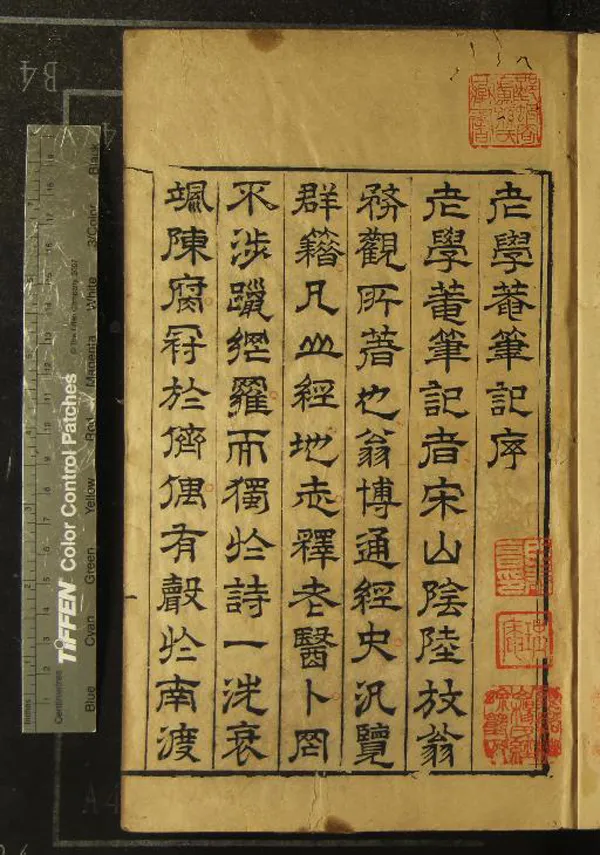 老學菴筆記序
老學菴筆記者宋山陰陸放翁
務觀所著也翁博通經史汎覽
群籍凡山經地志釋老醫卜罔
不涉躐網羅而獨於詩一洗衰
颯陳腐冠於儕偶有聲於南渡
TIFFEN Color Control Patches
© The Tiffen Company, 2007
Blue Cyan Green Yellow Red Magenta White 3/Color Black
Inches
Centimetres
B4
A4